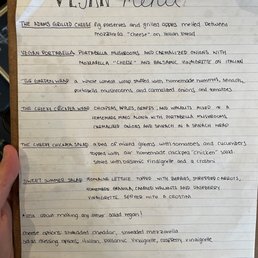 VEGAN MENU!
THE ADAMS GRILLED CHEESE fig preserves and grilled apples melted between
mozzarella "cheese" on Italian bread
VEGAN PORTABELLA PORTABELLA MUSHROOMS AND CARMALIZED ONIONS WITH
MOZZARELLA "CHEESE" AND BALSAMIC VINAIGRETTE ON ITALIAN
THE GARDEN WRAP a whole wheat wrap stuffed with homemade hummus, spinach,
portabella mushrooms, and carmalized onions, and tomatoes
THE CHEEKI CHICKPEA WRAP CHICKPEAS, APPLES, AND MIXED IN A
HOMEMADE MAYO ALONG WITH PORTABELLA MUSHROOMS,
CARMALIZED ONIONS AND SPINACH IN A SPINACH WRAP
THE CHEEKI CHICKPEA SALAD a bed of mixed greens with tomatoes and cucumbers
topped with our homemade chickpea "chicken" salad.
served with balsamic vinaigrette and a crostini
SWEET SUMMER SALAD ROMAINE LETTUCE TOPPED WITH BERRIES, SHREDDED CARROTS,
HOMEMADE GRANOLA, CANDIED WALNUTS AND RASPBERRY
VINAIGRETTE. SERVED WITH A CROSTINI
*ask about making any other salad vegan!
cheese options: shredded cheddar, shredded mozzarella
salad dressing options: italian, balsamic vinaigrette, raspberry vinaigrette